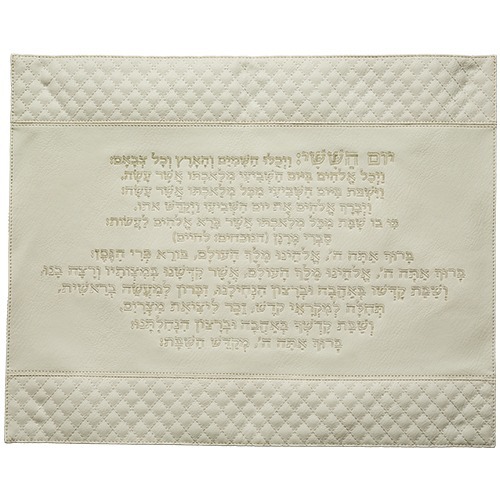 יוֹם הַשִּׁשִּׁי: וַיְכֻלּוּ הַשָּׁמַיִם וְהָאָרֶץ וְכָל צְבָאָם:
וַיְכַל אֱלֹהִים בַּיּוֹם הַשְּׁבִיעִי מְלַאכְתּוֹ אֲשֶׁר עָשָׂה,
וַיִּשְׁבֹּת בַּיּוֹם הַשְּׁבִיעִי מִכָּל מְלַאכְתּוֹ אֲשֶׁר עָשָׂה:
וַיְבָרֶךְ אֱלֹהִים אֶת יוֹם הַשְּׁבִיעִי וַיְקַדֵּשׁ אֹתוֹ,
כִּי בוֹ שָׁבַת מִכָּל מְלַאכְתּוֹ אֲשֶׁר בָּרָא אֱלֹהִים לַעֲשׂוֹת:
סַבְרִי מָרָנָן (הנוכחים: לחיים)
בָּרוּךְ אַתָּה ה', אֱלֹהֵינוּ מֶלֶךְ הָעוֹלָם, בּוֹרֵא פְּרִי הַגָּפֶן:
בָּרוּךְ אַתָּה ה', אֱלֹהֵינוּ מֶלֶךְ הָעוֹלָם, אֲשֶׁר קִדְּשָׁנוּ בְּמִצְוֹתָיו וְרָצָה בָנוּ,
וְשַׁבַּת קָדְשׁוֹ בְּאַהֲבָה וּבְרָצוֹן הִנְחִילָנוּ, זִכָּרוֹן לְמַעֲשֵׂה בְרֵאשִׁית,
תְּחִלָּה לְמִקְרָאֵי קֹדֶשׁ, זֵכֶר לִיצִיאַת מִצְרָיִם,
וְשַׁבַּת קָדְשְׁךָ בְּאַהֲבָה וּבְרָצוֹן הִנְחַלְתָּנוּ:
בָּרוּךְ אַתָּה ה', מְקַדֵּשׁ הַשַּׁבָּת: